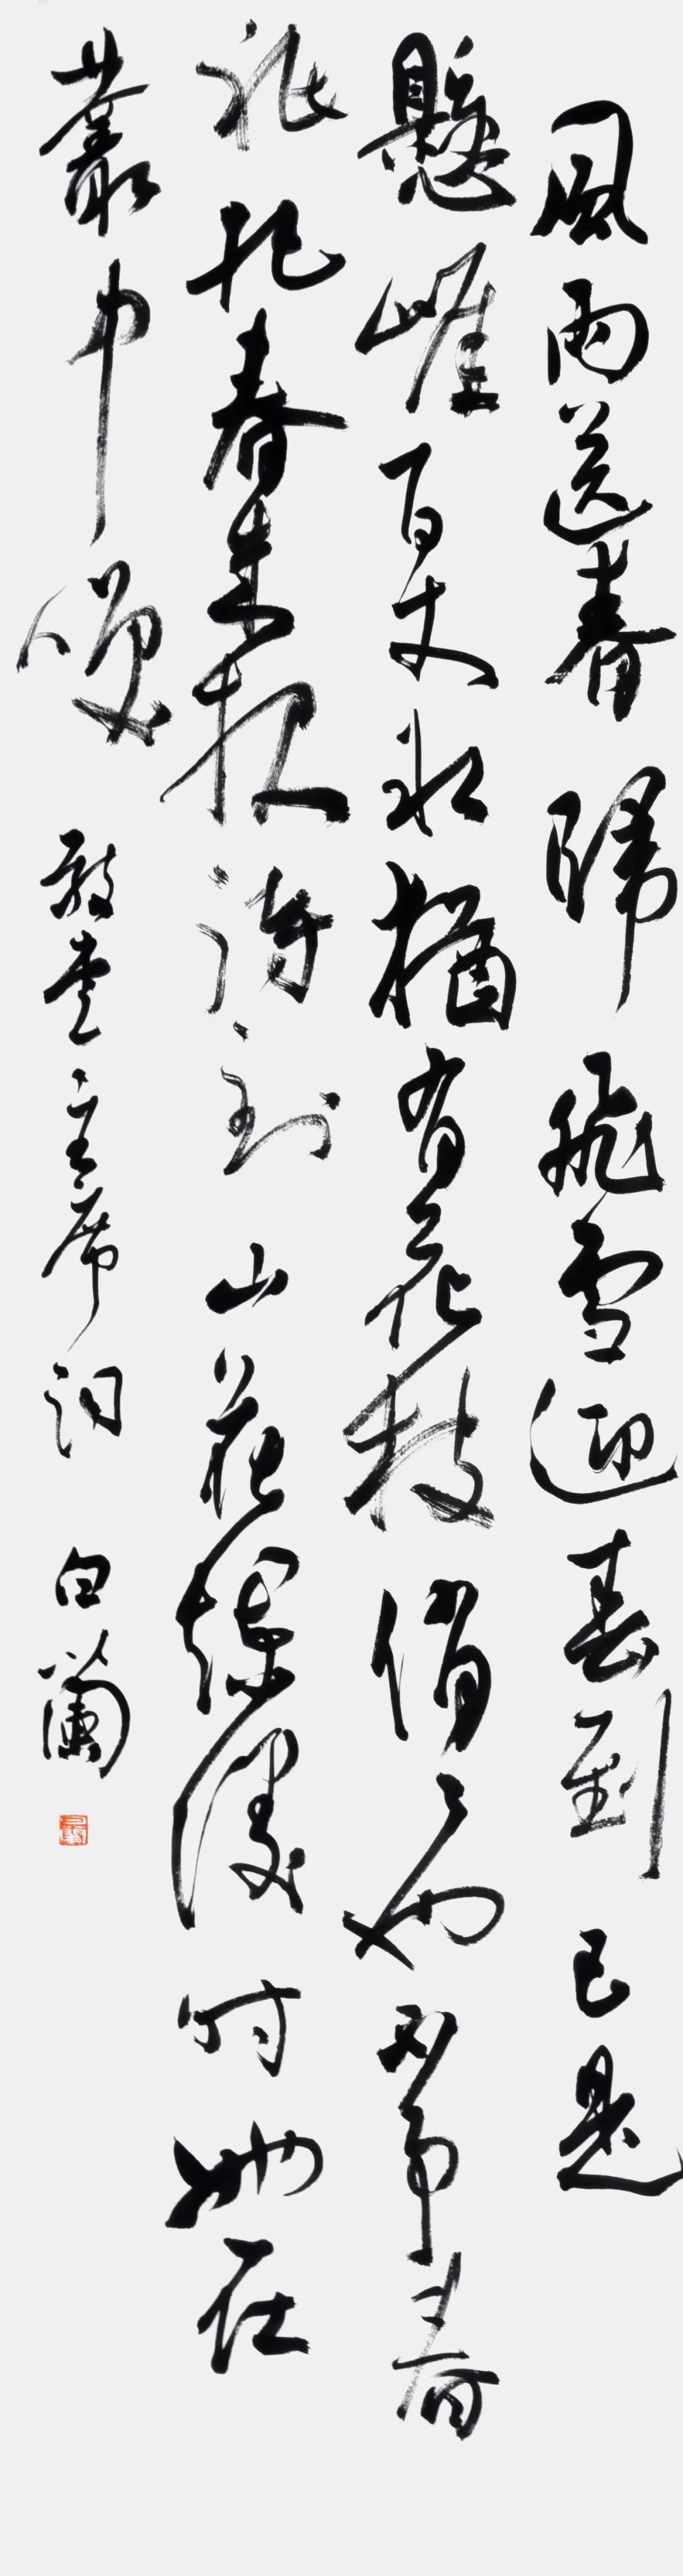 風雨送春歸飛雪迎春到已是
懸崖百丈冰猶有花枝俏々也不爭春
祇把春来報待到山花爛漫時她在
叢中咲 敬書主席詞 白蘭